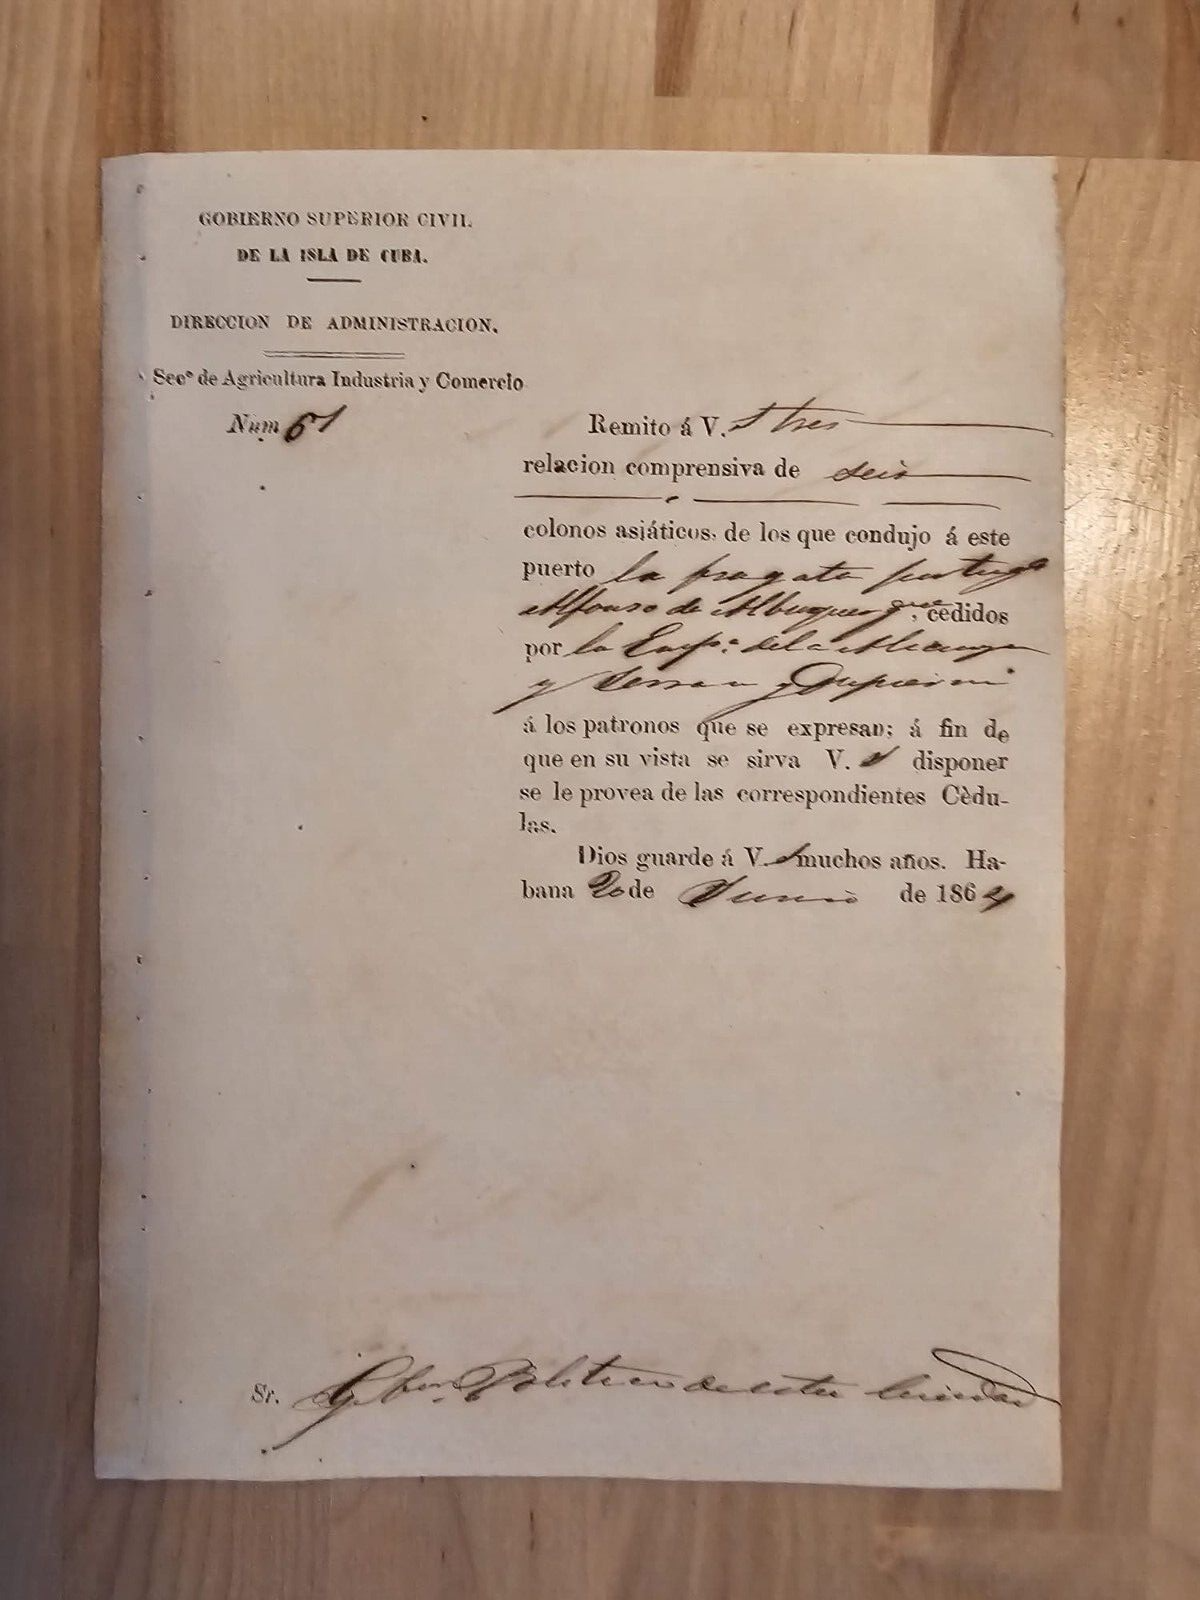 GOBIERNO SUPERIOR CIVIL
DE LA ISLA DE CUBA.
DIRECCION DE ADMINISTRACION.
Secⁿ de Agricultura Industria y Comercio
Núm 61
Remito á V. S tres
relacion comprensiva de seis
colonos asiáticos, de los que condujo á este
puerto la fragata portugª
Alfonso de Alburquerque, cedidos
por la Empª. de la Alianza
y
á los patronos que se expresan; á fin de
que en su vista se sirva V. S disponer
se le provea de las correspondientes Cèdu-
las.
Dios guarde á V. S muchos años. Ha-
bana 20 de Junio de 1864
Sr. Gobor. Politico de esta Ciudad